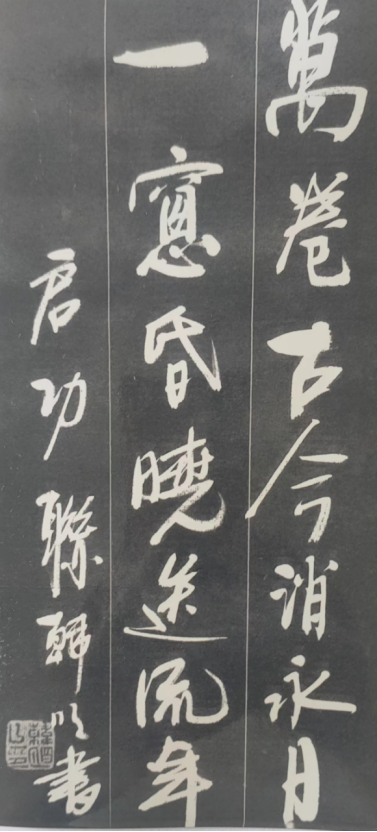 萬卷古今消永日
一窻昏曉送流年
启功聯書